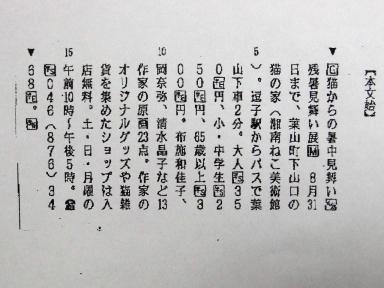 【本文始】
▼猫からの暑中見舞い
残暑見舞い展 8月31
日まで、葉山町下山口の
猫の家（湘南ねこ美術館
5 ）。逗子駅からバスで葉
山下車2分。大人35
0円、小・中学生2
50円、65歳以上3
00円。布施和佳子、
10 岡奈弥、清水晶子など13
作家の原画23点。作家の
オリジナルグッズや猫雑
貨を集めたショップは入
店無料。土・日・月曜の
15 午前10時〜午後5時。☎
046（876）34
▼68。